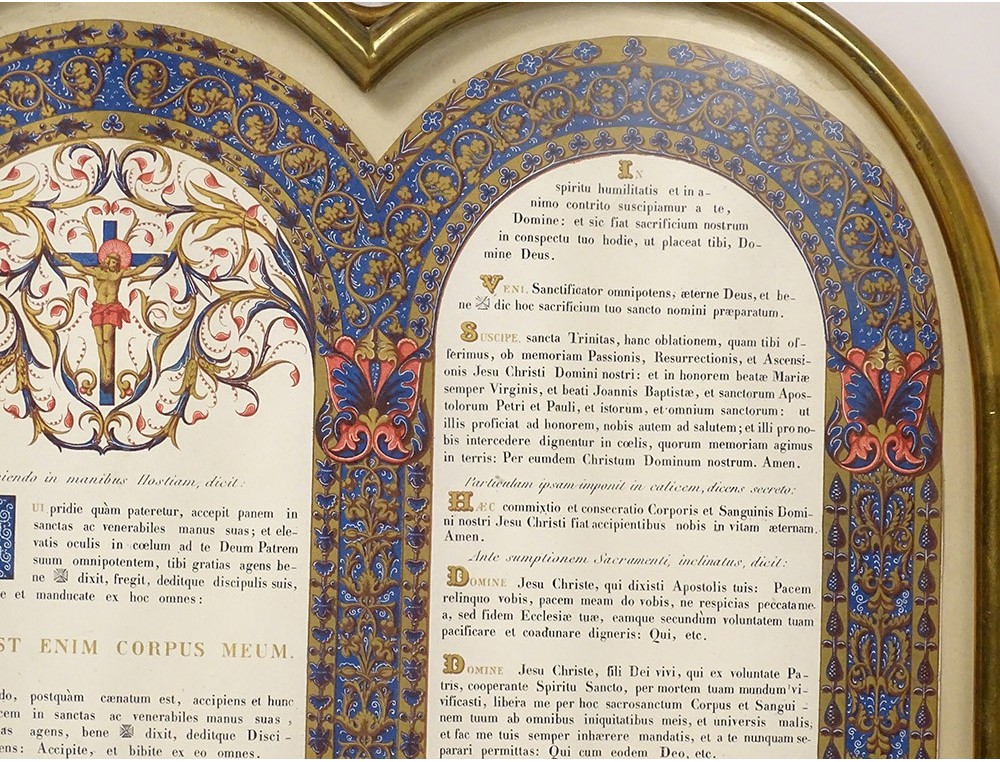 niendo in manibus Hostiam, dicit:
UI pridie quàm pateretur, accepit panem in
sanctas ac venerabiles manus suas; et ele-
vatis oculis in cœlum ad te Deum Patrem
suum omnipotentem, tibi gratias agens be-
ne ✠ dixit, fregit, deditque discipulis suis,
e et manducate ex hoc omnes:
ST ENIM CORPUS MEUM.
do, postquàm cænatum est, accipiens et hunc
cem in sanctas ac venerabiles manus suas,
as agens, bene ✠ dixit, deditque Disci-
ens: Accipite, et bibite ex eo omnes.
IN
spiritu humilitatis et in a-
nimo contrito suscipiamur a te,
Domine: et sic fiat sacrificium nostrum
in conspectu tuo hodie, ut placeat tibi, Do-
mine Deus.
VENI. Sanctificator omnipotens, æterne Deus, et be-
ne ✠ dic hoc sacrificium tuo sancto nomini præparatum.
SUSCIPE. sancta Trinitas, hanc oblationem, quam tibi of-
ferimus, ob memoriam Passionis, Resurrectionis, et Ascensi-
onis Jesu Christi Domini nostri: et in honorem beatæ Mariæ
semper Virginis, et beati Joannis Baptistæ, et sanctorum Apos-
tolorum Petri et Pauli, et istorum, et omnium sanctorum: ut
illis proficiat ad honorem, nobis autem ad salutem; et illi pro no-
bis intercedere dignentur in cœlis, quorum memoriam agimus
in terris: Per eumdem Christum Dominum nostrum. Amen.
Particulam ipsam imponit in calicem, dicens secreto:
HÆC commixtio et consecratio Corporis et Sanguinis Domi-
ni nostri Jesu Christi fiat accipientibus nobis in vitam æternam.
Amen.
Ante sumptionem Sacramenti, inclinatus, dicit:
DOMINE Jesu Christe, qui dixisti Apostolis tuis: Pacem
relinquo vobis, pacem meam do vobis, ne respicias peccata me-
a, sed fidem Ecclesiæ tuæ, eamque secundùm voluntatem tuam
pacificare et coadunare digneris: Qui, etc.
DOMINE Jesu Christe, fili Dei vivi, qui ex voluntate Pa-
tris, cooperante Spiritu Sancto, per mortem tuam mundum vi-
vificasti, libera me per hoc sacrosanctum Corpus et Sangui-
nem tuum ab omnibus iniquitatibus meis, et universis malis;
et fac me tuis semper inhærere mandatis, et a te nunquam se-
parari permittas: Qui cum eodem Deo, etc.